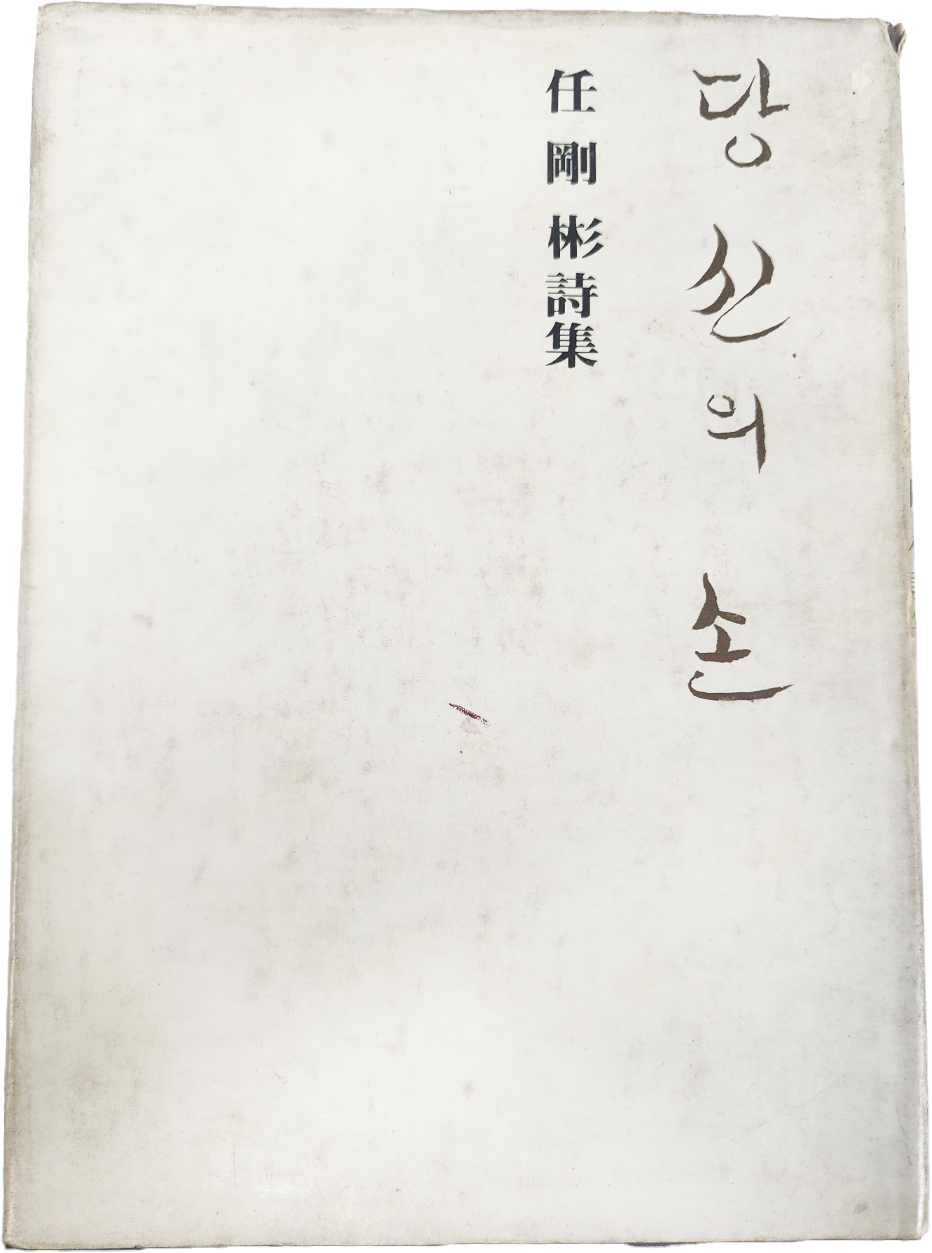 당신의 손
任剛彬詩集